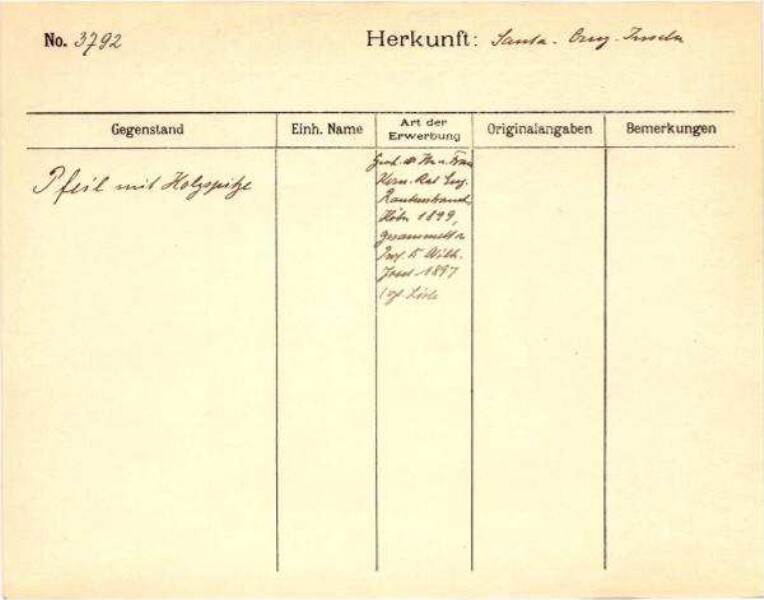 No. 3792 Herkunft: Santa-Cruz-Inseln
Gegenstand Einh. Name Art der Erwerbung Originalangaben Bemerkungen
Pfeil mit Holzspitze
Gesch. d. Hr. u. Frau
Kom. Rat Eug.
Rautenstrauch
Köln 1899,
gesammelt v.
Prof. Dr. Wilh.
Joest 1897